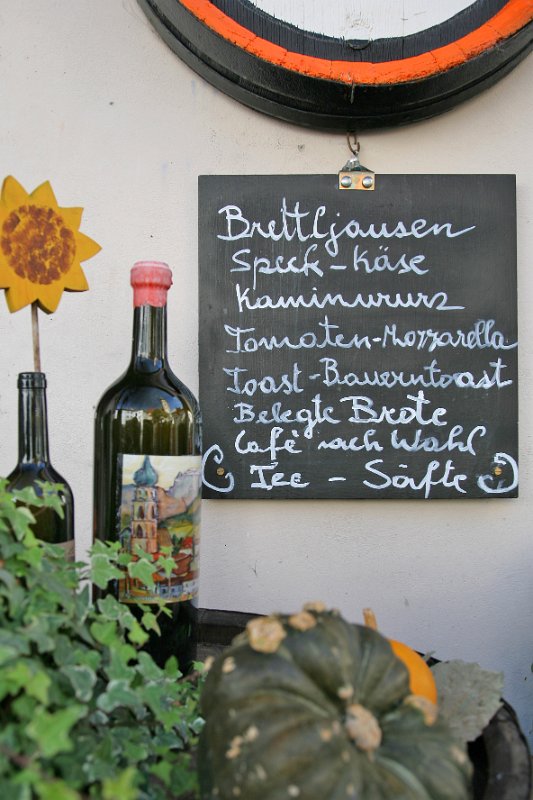 Brettljausen
Speck-Käse
Kaminwurz
Tomaten-Mozzarella
Toast-Bauerntoast
Belegte Brote
Café nach Wahl
Tee - Säfte